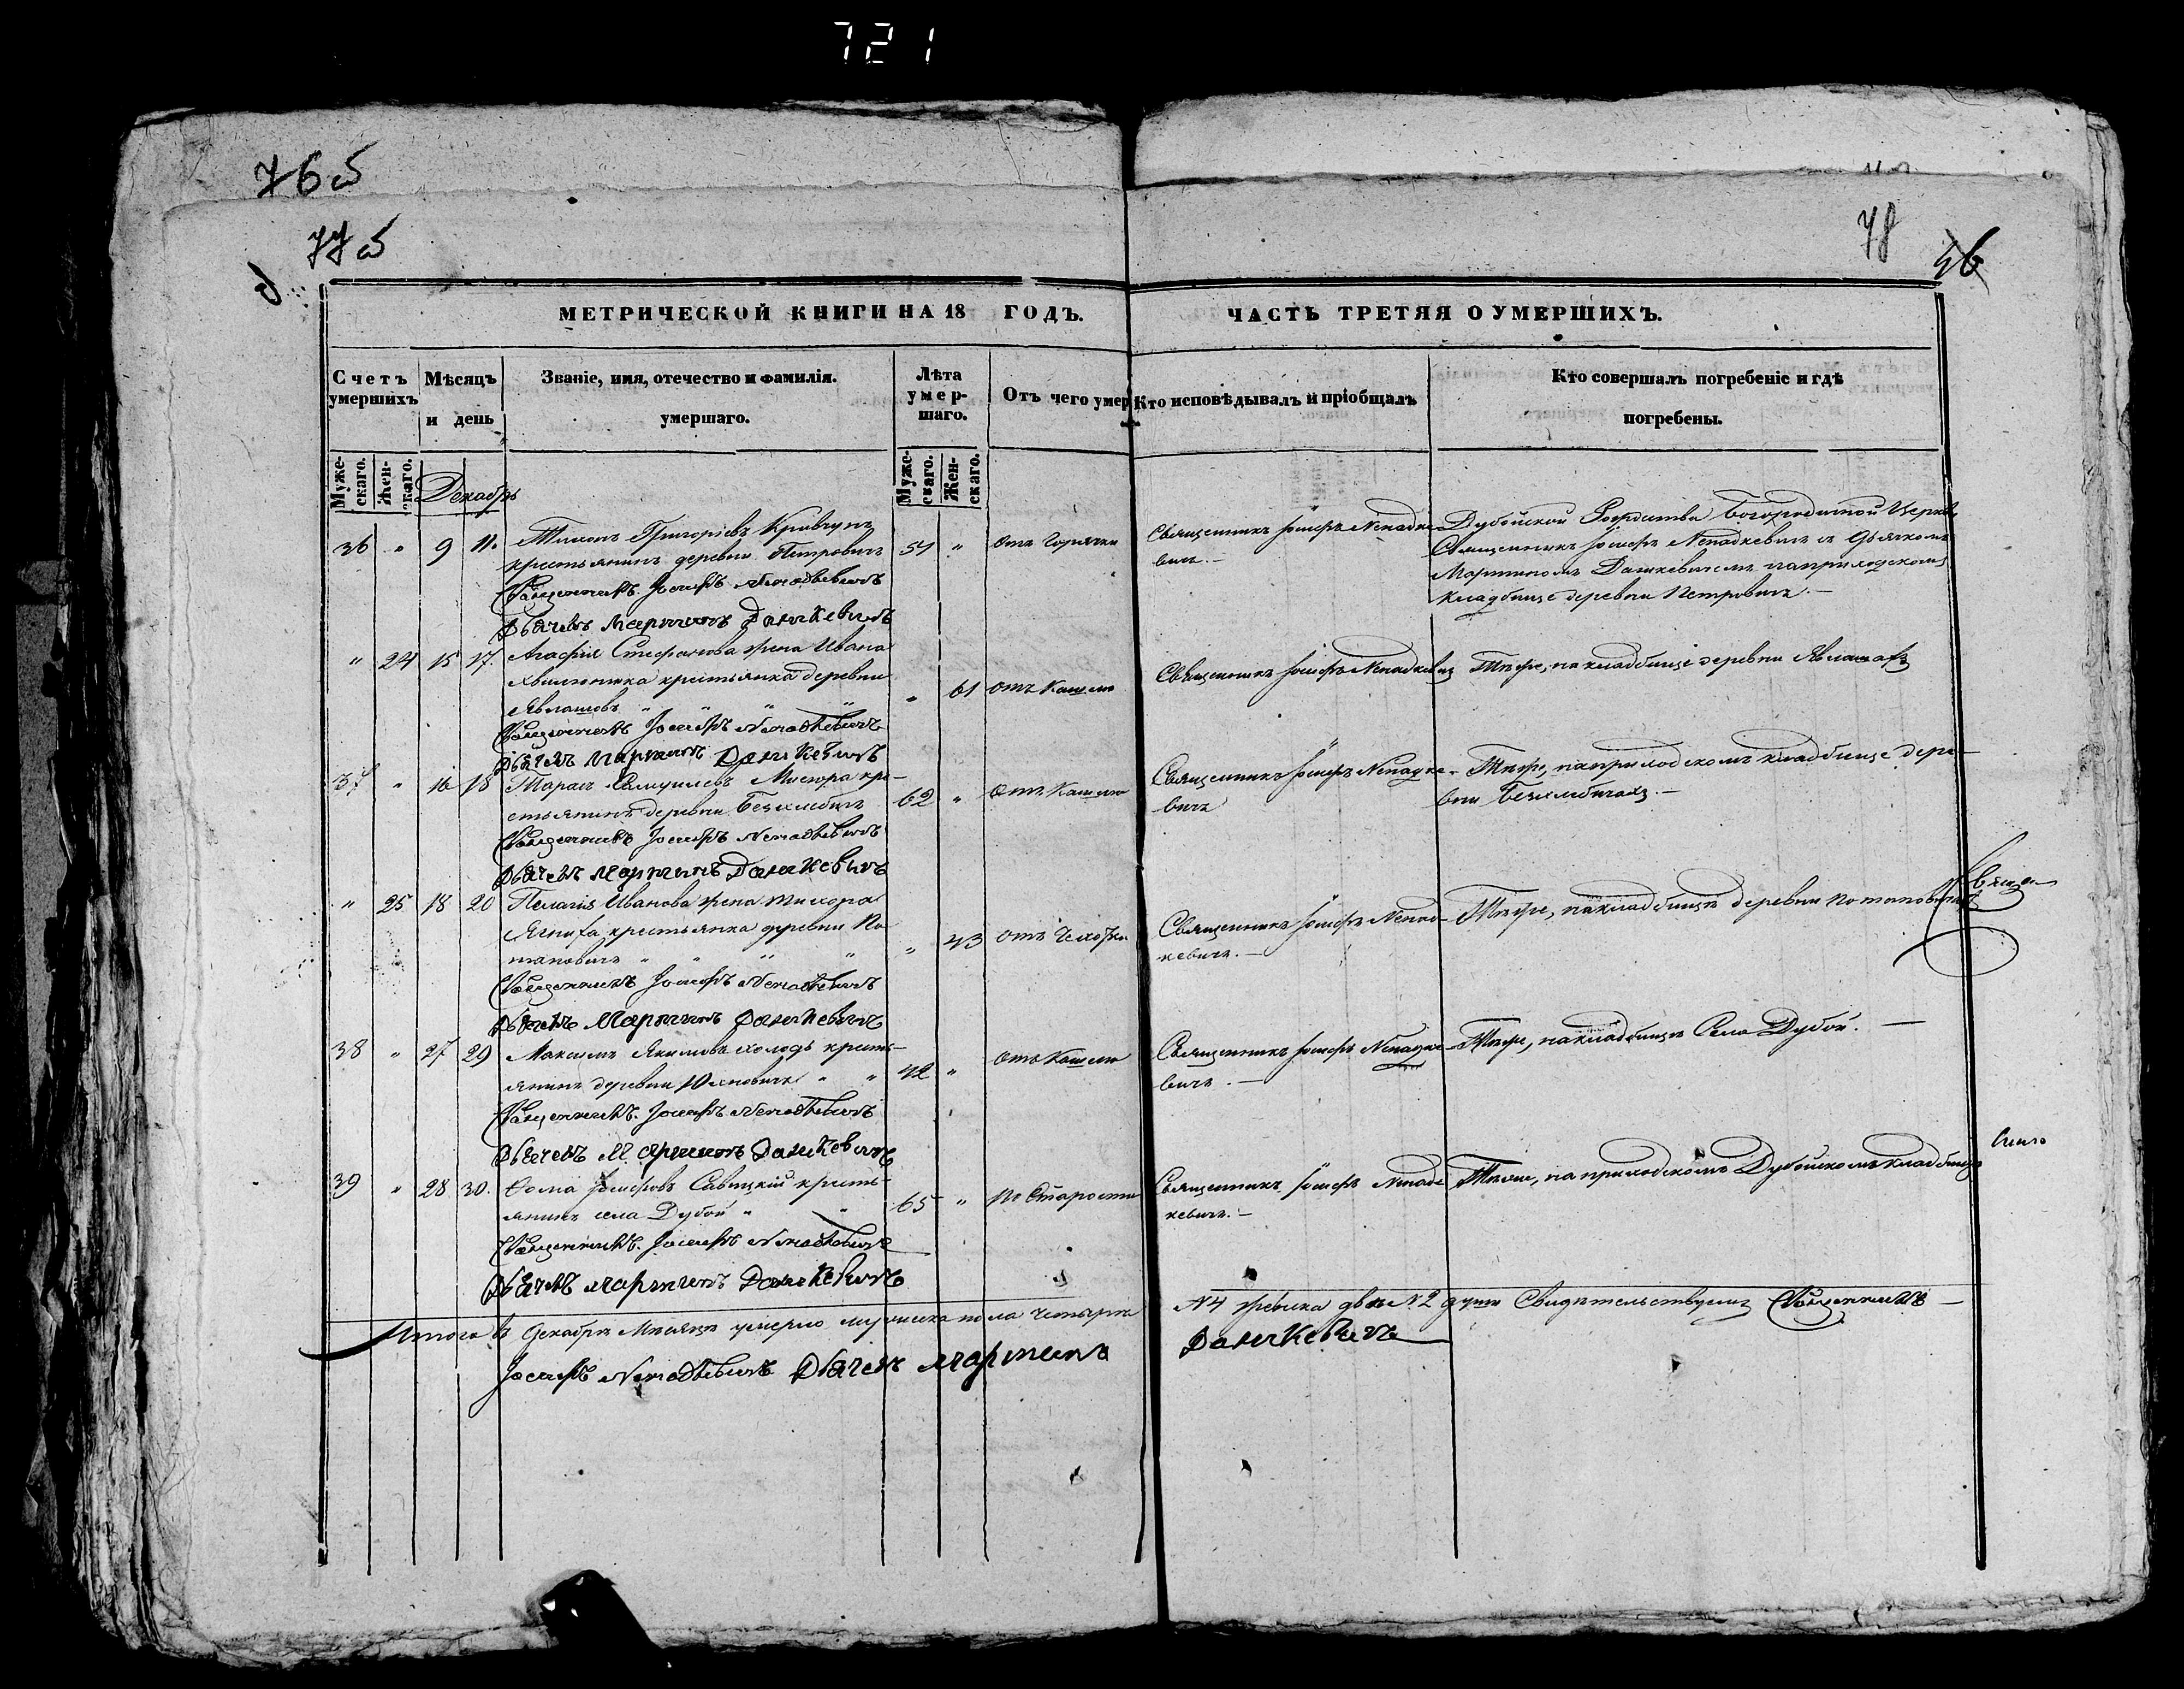 721
76 б
77 б
78
МЕТРИЧЕСКОЙ КНИГИ НА 18 ГОДЪ.
ЧАСТЬ ТРЕТЯЯ О УМЕРШИХЪ.
Счетъ умершихъ
Мѣсяцъ и день
Званіе, имя, отечество и фамилія. умершаго.
Лѣта умер-шаго.
Отъ чего умер
Кто исповѣдывалъ и пріобщалъ
Кто совершалъ погребеніе и гдѣ погребены.
Муже-скаго.
Жен-скаго.
Декабрь
Муже-скаго.
Жен-скаго.
36 " 9 11. Григоріевъ Кривчунъ 54 " отъ Горячки Священникъ Іосифъ Ненадке- Дубойской Рождества Богородичной Церкви
крестьянинъ деревни Петровичъ вичъ.— Священникъ Іосифъ Ненадкевичъ съ Дьячкомъ
Священникъ Іосифъ Ненадкевичъ Мартиномъ Дашкевичемъ на приходскомъ
Дьячекъ Мартинъ Дашкевичъ кладбище деревни Петровичъ.—
" 24 15 17. Агафія Стефанова жена Ивана Священникъ Іосифъ Ненадкевичъ Тѣже, на кладбище деревни
крестьянка деревни " 61 отъ Кашлю
Священникъ Іосифъ Ненадкевичъ
Дьячекъ Мартинъ Дашкевичъ
37 " 16 18 Тарасъ Самуилевъ кре- 62 " отъ Кашлю Священникъ Іосифъ Ненадке- Тѣже, на приходскомъ кладбище дере-
стьянинъ деревни Безхлебичъ вичъ вни Безхлебичахъ.—
Священникъ Іосифъ Ненадкевичъ
Дьячекъ Мартинъ Дашкевичъ
" 25 18 20 Пелагія Иванова жена Священникъ Іосифъ Ненад- Тѣже, на кладбищѣ деревни Потаповичъ
крестьянка деревни По- " 43 отъ Чахотки кевичъ.—
таповичъ " " " "
Священникъ Іосифъ Ненадкевичъ
Дьячекъ Мартинъ Дашкевичъ
Священ-
38 " 27 29 Максимъ Якимовъ Холодъ кресть- 42 " отъ Кашлю Священникъ Іосифъ Ненадке- Тѣже, на кладбищѣ Села Дубой.—
янинъ деревни " " вичъ.—
Священникъ Іосифъ Ненадкевичъ
Дьячекъ Мартинъ Дашкевичъ
39 " 28 30. Ѳома Іосифовъ Савицкій кресть- 65 " по Старости Священникъ Іосифъ Ненад- Тѣже, на приходскомъ Дубойскомъ кладбищѣ
янинъ села Дубой " " кевичъ.—
Священникъ Іосифъ Ненадкевичъ
Дьячекъ Мартинъ Дашкевичъ
Итого въ Декабрѣ Мѣсяцѣ умерло мужеска пола четыре
№ 4 женска двѣ № 2 души Свидѣтельствуемъ Священникъ
Іосифъ Ненадкевичъ Дьячекъ Мартинъ Дашкевичъ